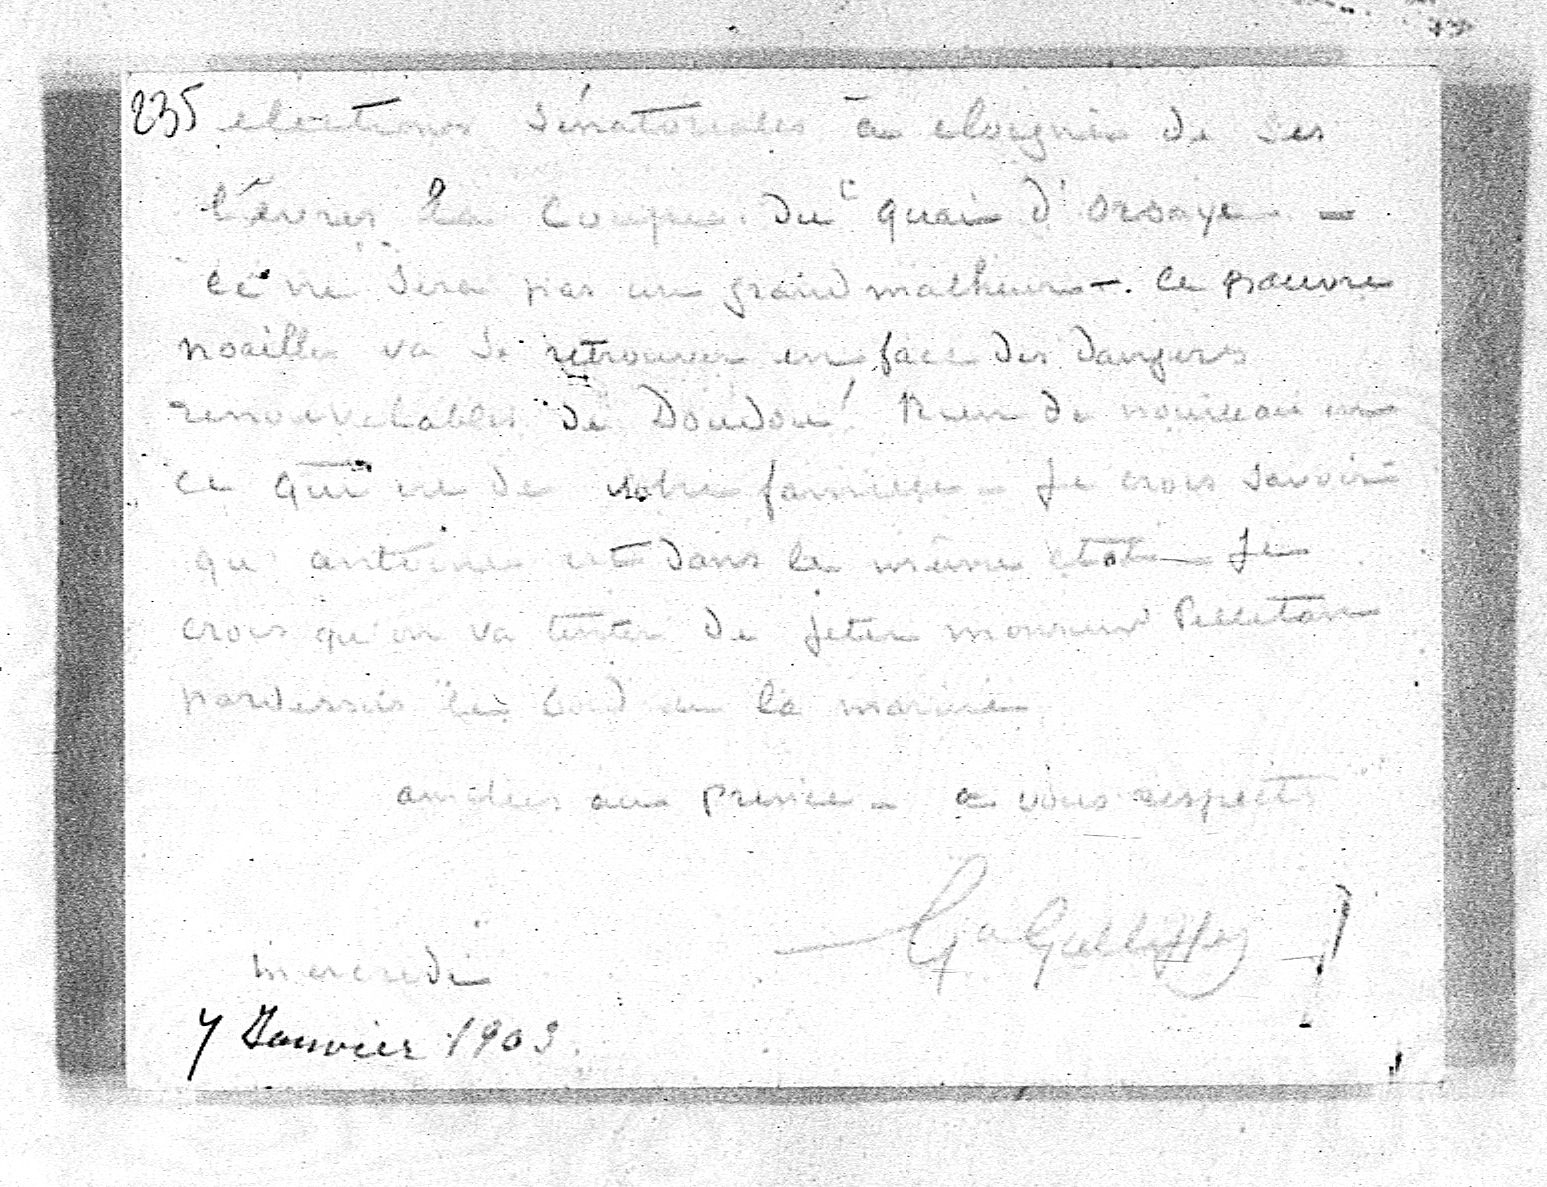 235 elections sénatoriales a eloigné de ses
lèvres la coupe du quai d'orsaye. —
ce ne sera pas un grand malheur —. ce pauvre
noailles va se retrouver en face des dangers
renouvelables de Doudou! Rien de nouveau en
ce qui ne de votre famille — Je crois savoir
qu'antoine est dans le même état — Je
crois qu'on va tenter de jeter monsieur Pelletan
pardessus le bord de la marine
amitiés au prince — a vous respects
Gal Galliffet
mercredi
7 Janvier 1903